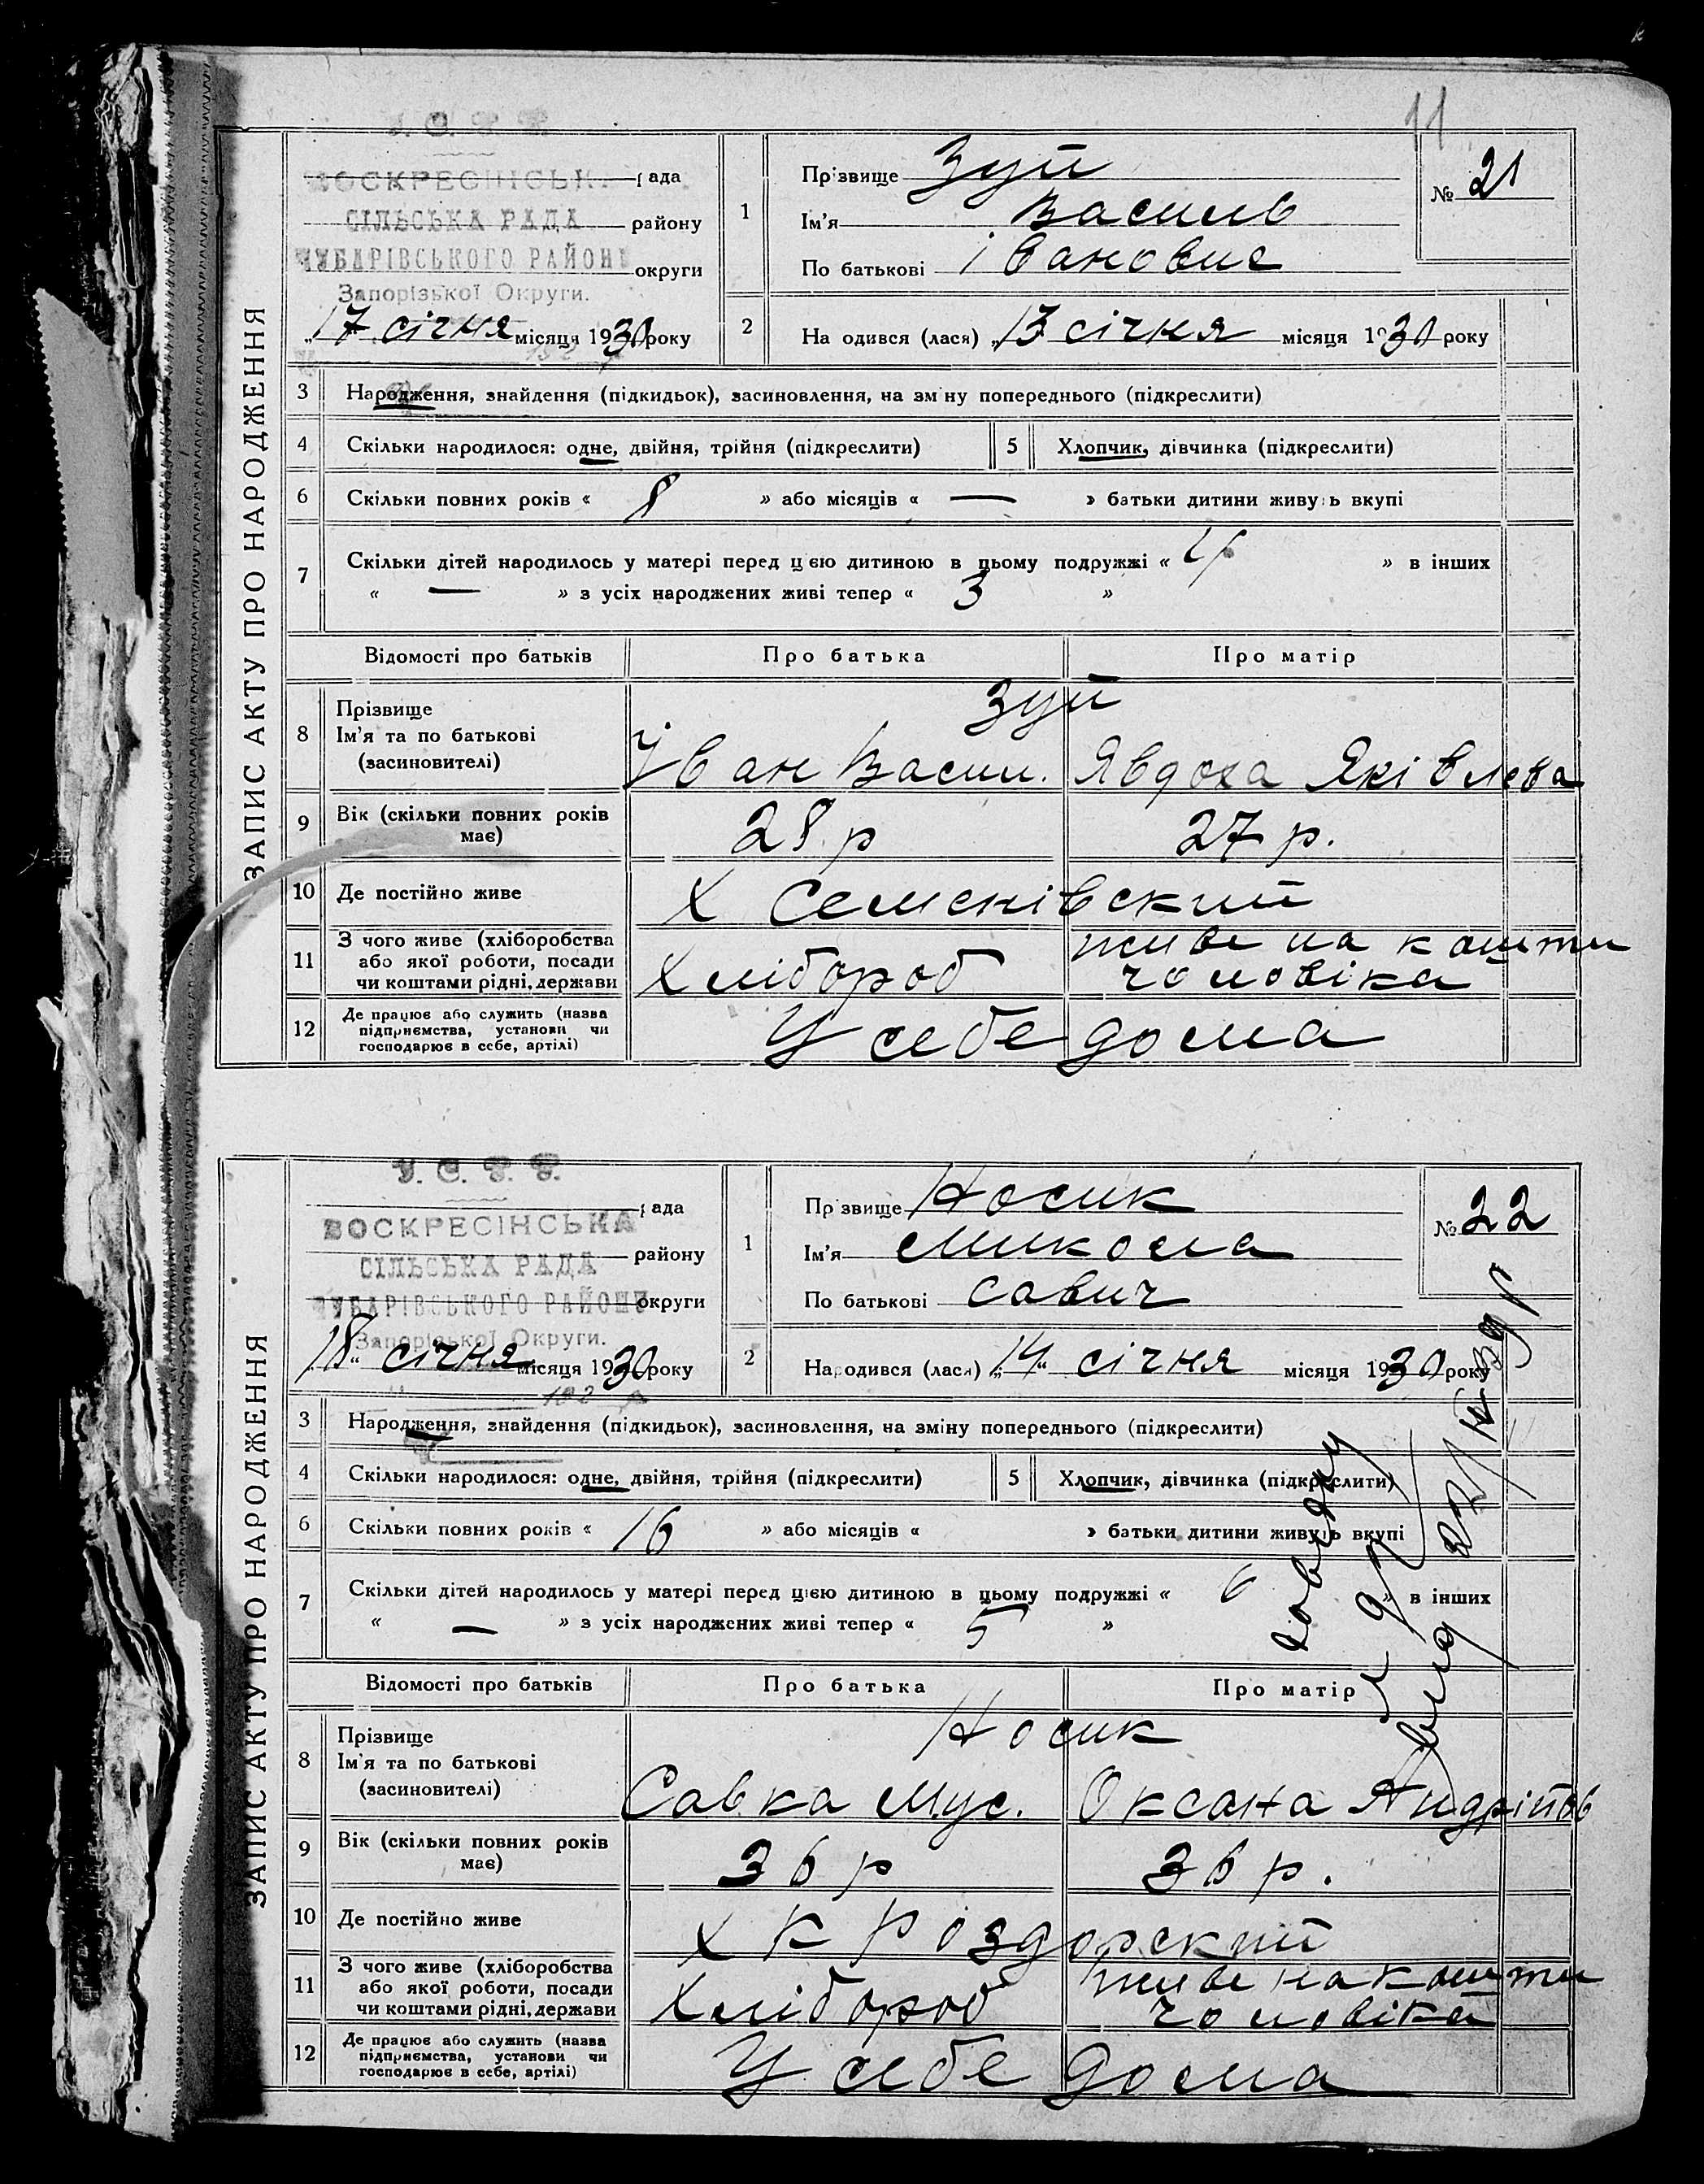 11
У. С. Р. Р.
ВОСКРЕСІНСЬКА рада
СІЛЬСЬКА РАДА району
ЧУБАРІВСЬКОГО РАЙОНУ округи
Запорізької Округи.
„17 січня місяця 1930 року
ЗАПИС АКТУ ПРО НАРОДЖЕННЯ
№ 21
1 Прізвище Зуй
Ім'я Василь
По батькові Івановис
2 Народився (лася) „13 січня місяця 1930 року
3 Народження, знайдення (підкидьок), засиновлення, на зміну попереднього (підкреслити)
4 Скільки народилося: одне, двійня, трійня (підкреслити) 5 Хлопчик, дівчинка (підкреслити)
6 Скільки повних років « 8 » або місяців « — » батьки дитини живуть вкупі
7 Скільки дітей народилось у матері перед цією дитиною в цьому подружжі « 4 » в інших
« — » з усіх народжених живі тепер « 3 »
Відомості про батьків Про батька Про матір
8 Прізвище Ім'я та по батькові (засиновителі) Зуй
Іван Васил. Явдоха Яківлева
9 Вік (скільки повних років має) 28 р 27 р.
10 Де постійно живе Х Семенівский
11 З чого живе (хліборобства або якої роботи, посади чи коштами рідні, держави Хлібороб живе на кошти чоловіка
12 Де працює або служить (назва підприємства, установи чи господарює в себе, артілі) У себе дома
У. С. Р. Р.
ВОСКРЕСІНСЬКА рада
СІЛЬСЬКА РАДА району
ЧУБАРІВСЬКОГО РАЙОНУ округи
Запорізької Округи.
„18" січня місяця 1930 року
ЗАПИС АКТУ ПРО НАРОДЖЕННЯ
№ 22
1 Прізвище Носик
Ім'я Микола
По батькові Савич
2 Народився (лася) „14" січня місяця 1930 року
3 Народження, знайдення (підкидьок), засиновлення, на зміну попереднього (підкреслити)
4 Скільки народилося: одне, двійня, трійня (підкреслити) 5 Хлопчик, дівчинка (підкреслити)
6 Скільки повних років « 16 » або місяців « » батьки дитини живуть вкупі
7 Скільки дітей народилось у матері перед цією дитиною в цьому подружжі « 6 » в інших
« — » з усіх народжених живі тепер « 5 »
Відомості про батьків Про батька Про матір
8 Прізвище Ім'я та по батькові (засиновителі) Носик
Савка Мус. Оксана Андріїов
9 Вік (скільки повних років має) 36 р 36 р.
10 Де постійно живе Х К Роздорский
11 З чого живе (хліборобства або якої роботи, посади чи коштами рідні, держави Хлібороб живе на кошти чоловіка
12 Де працює або служить (назва підприємства, установи чи господарює в себе, артілі) У себе дома